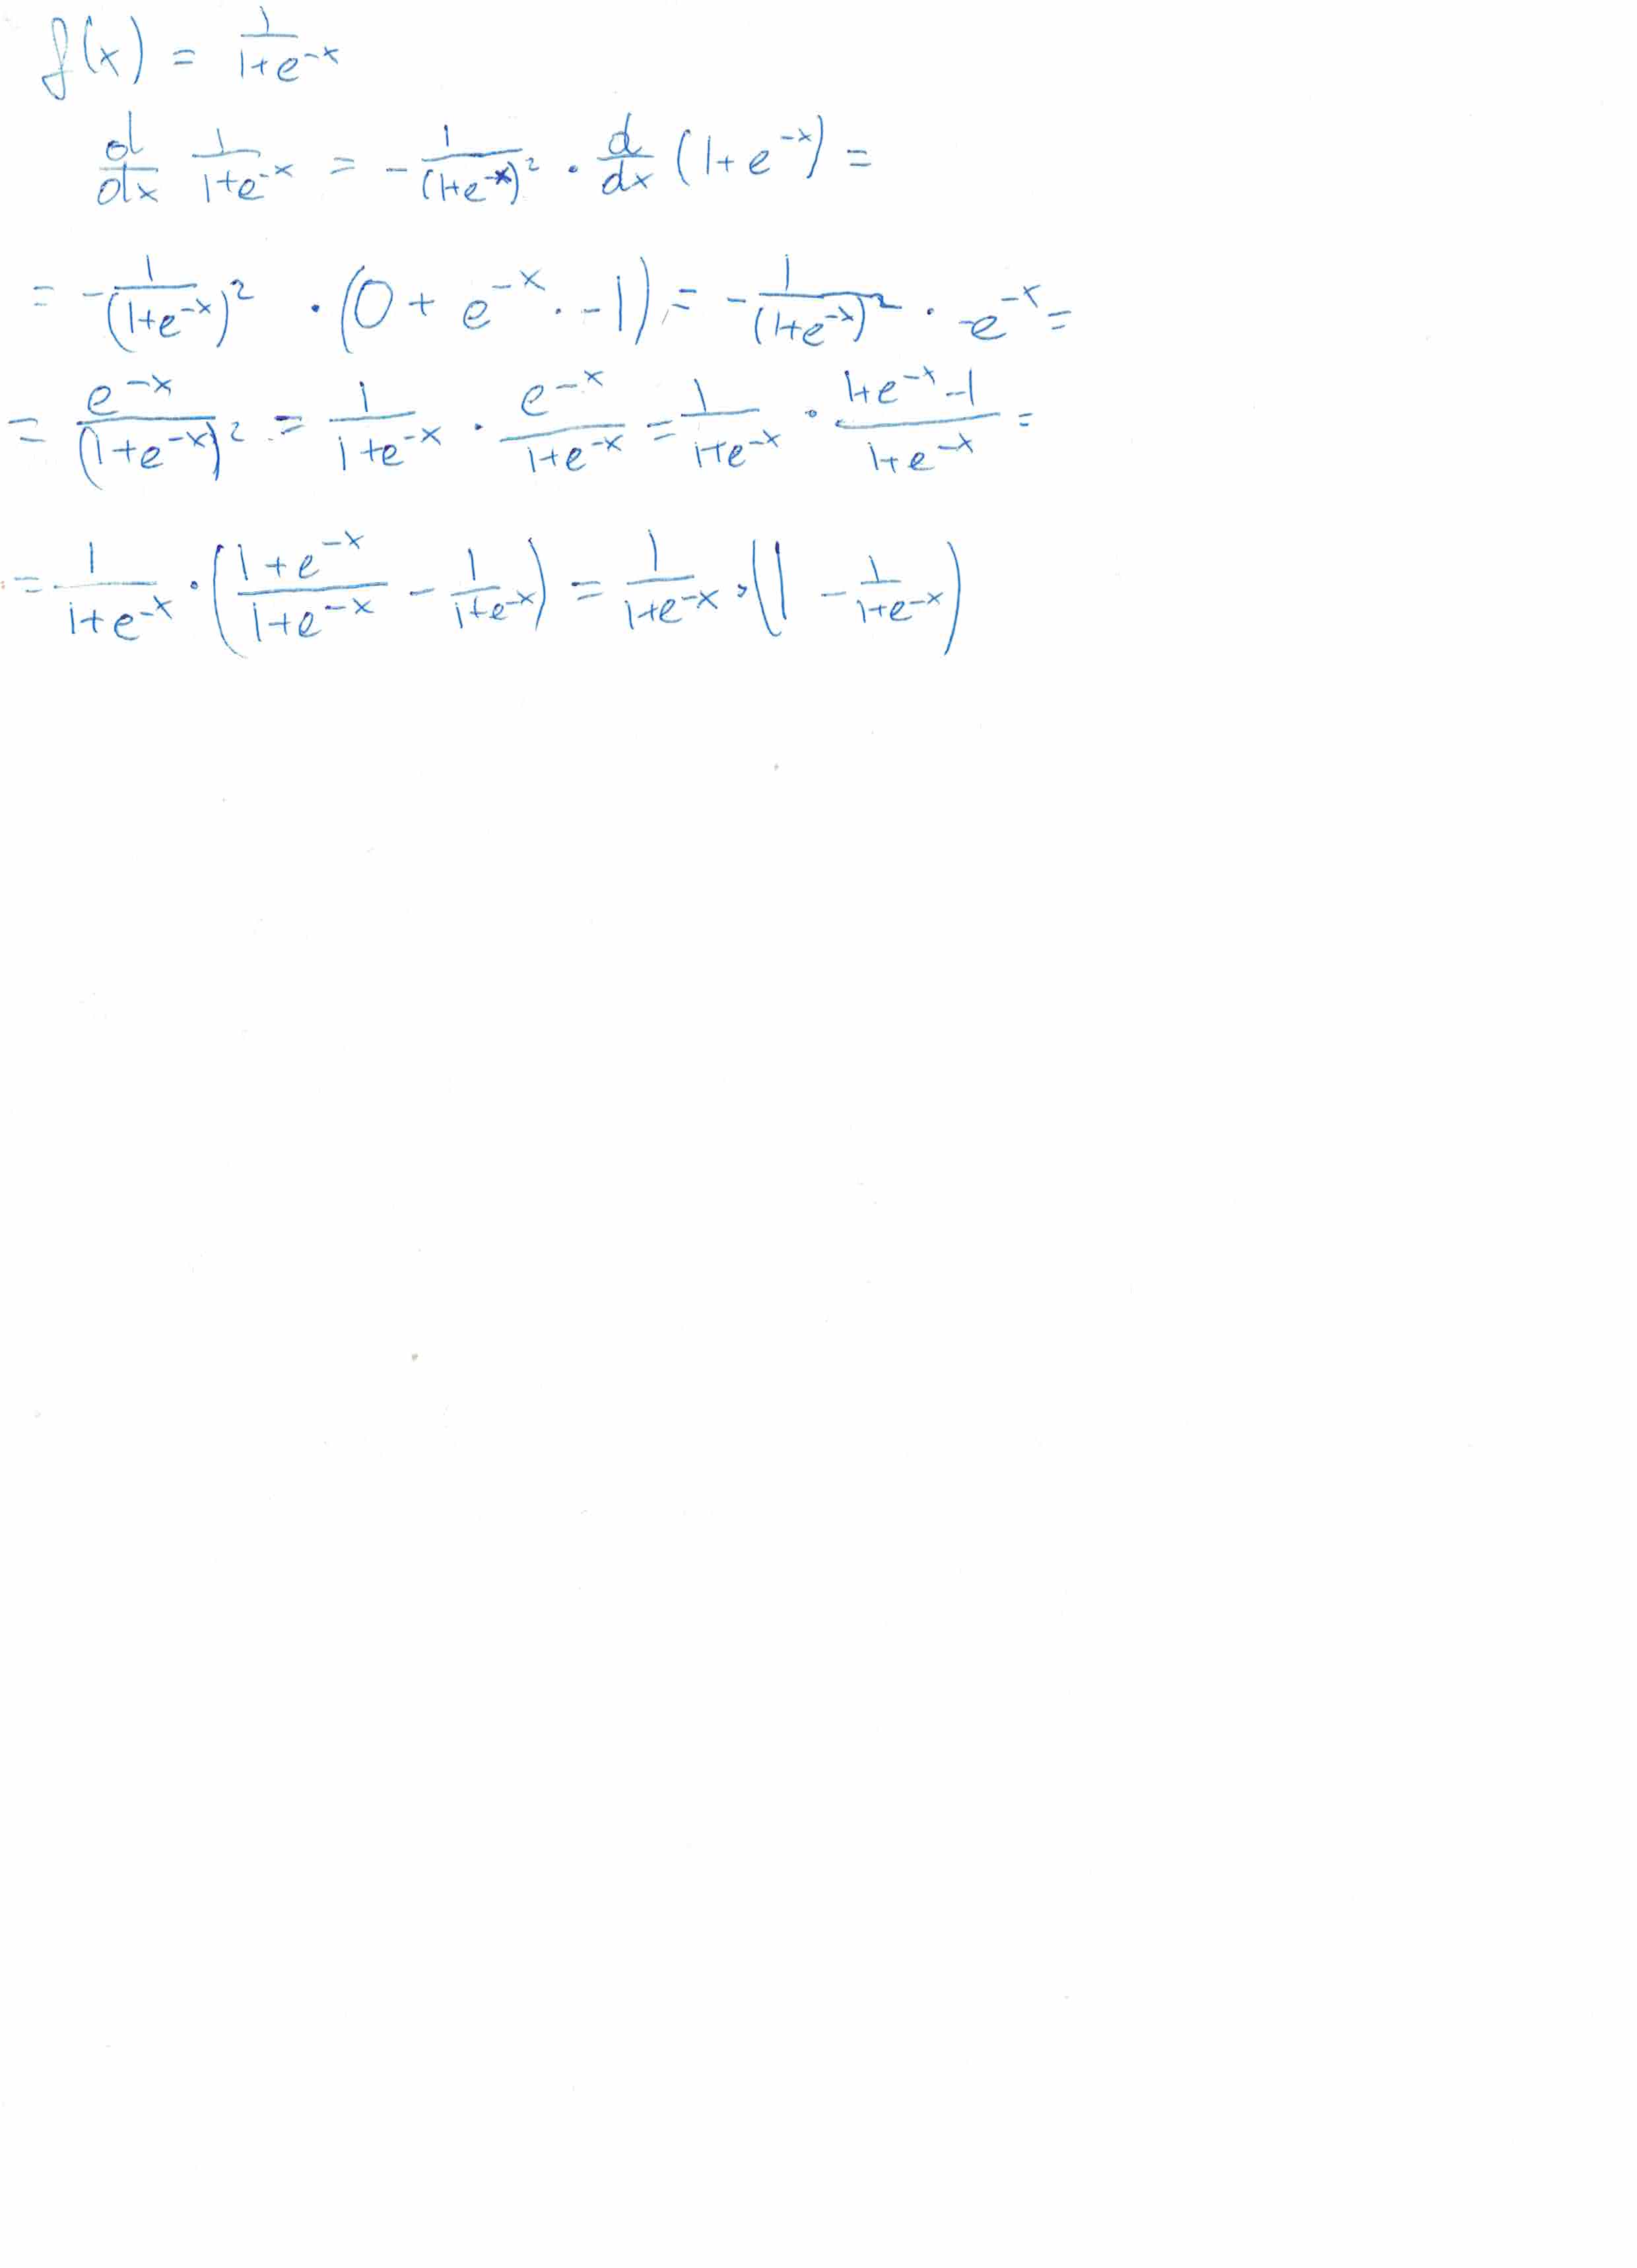 f(x) = 1/(1+e^-x)
d/dx 1/(1+e^-x) = - 1/(1+e^-x)^2 · d/dx (1+e^-x) =
= - 1/(1+e^-x)^2 · (0 + e^-x · -1) = - 1/(1+e^-x)^2 · -e^-x =
= e^-x/(1+e^-x)^2 = 1/(1+e^-x) · e^-x/(1+e^-x) = 1/(1+e^-x) · (1+e^-x -1)/(1+e^-x) =
= 1/(1+e^-x) · ((1+e^-x)/(1+e^-x) - 1/(1+e^-x)) = 1/(1+e^-x) · (1 - 1/(1+e^-x))